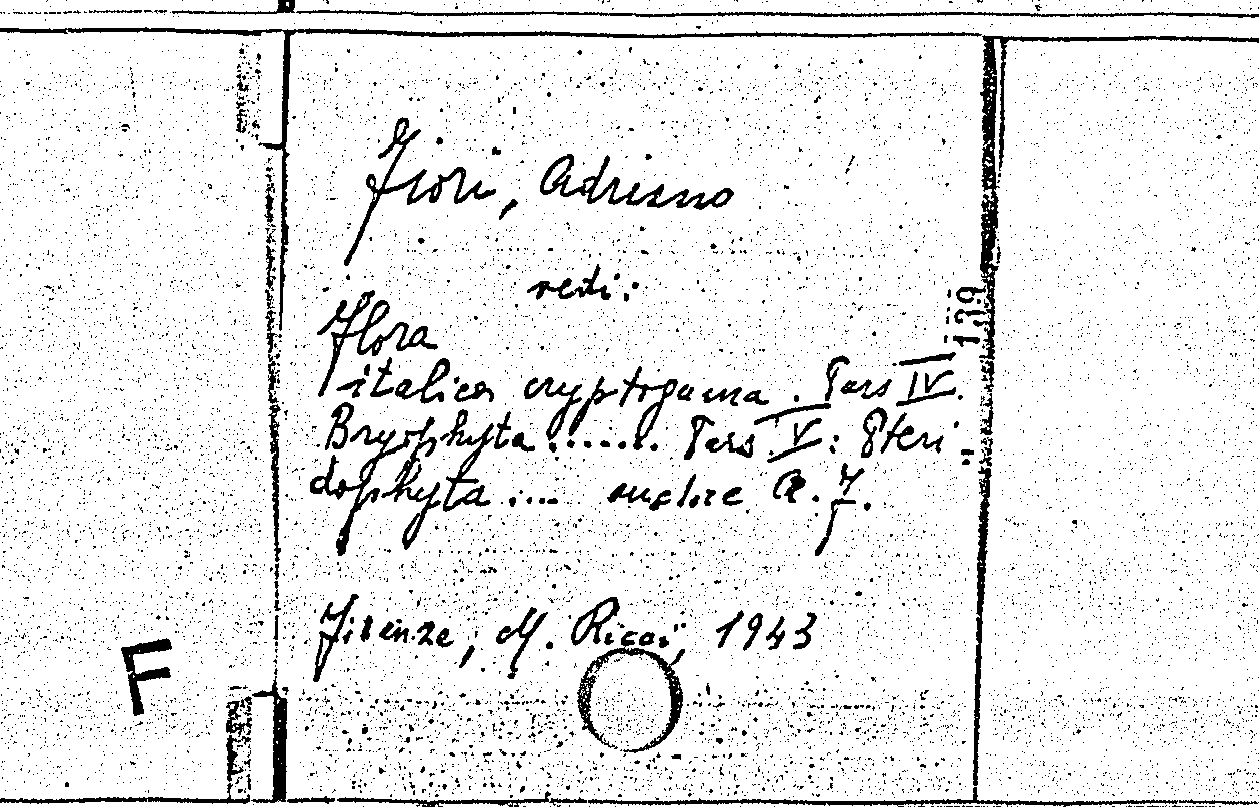 Fiori, Adriano
vedi:
Flora
italica cryptogama. Pars IV.
Bryophyta ....... Pars V: Pteri-
dophyta .... auctore A. F.
Firenze, M. Ricci, 1943
139
F